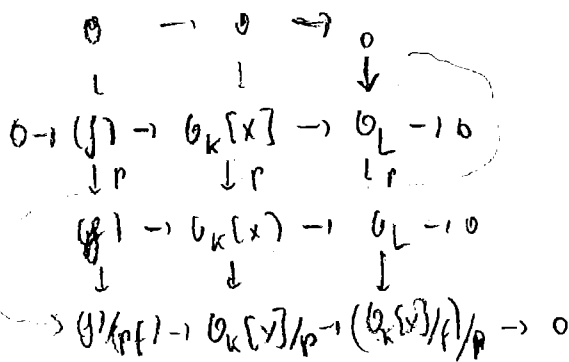 0 → 0 → 0
↓ ↓ ↓
0 → (f) → O_K[x] → O_L → 0
↓ p ↓ p ↓ p
(f) → O_K[x] → O_L → 0
↓ ↓ ↓
(f)/(pf) → O_K[x]/p → (O_K[x]/f)/p → 0